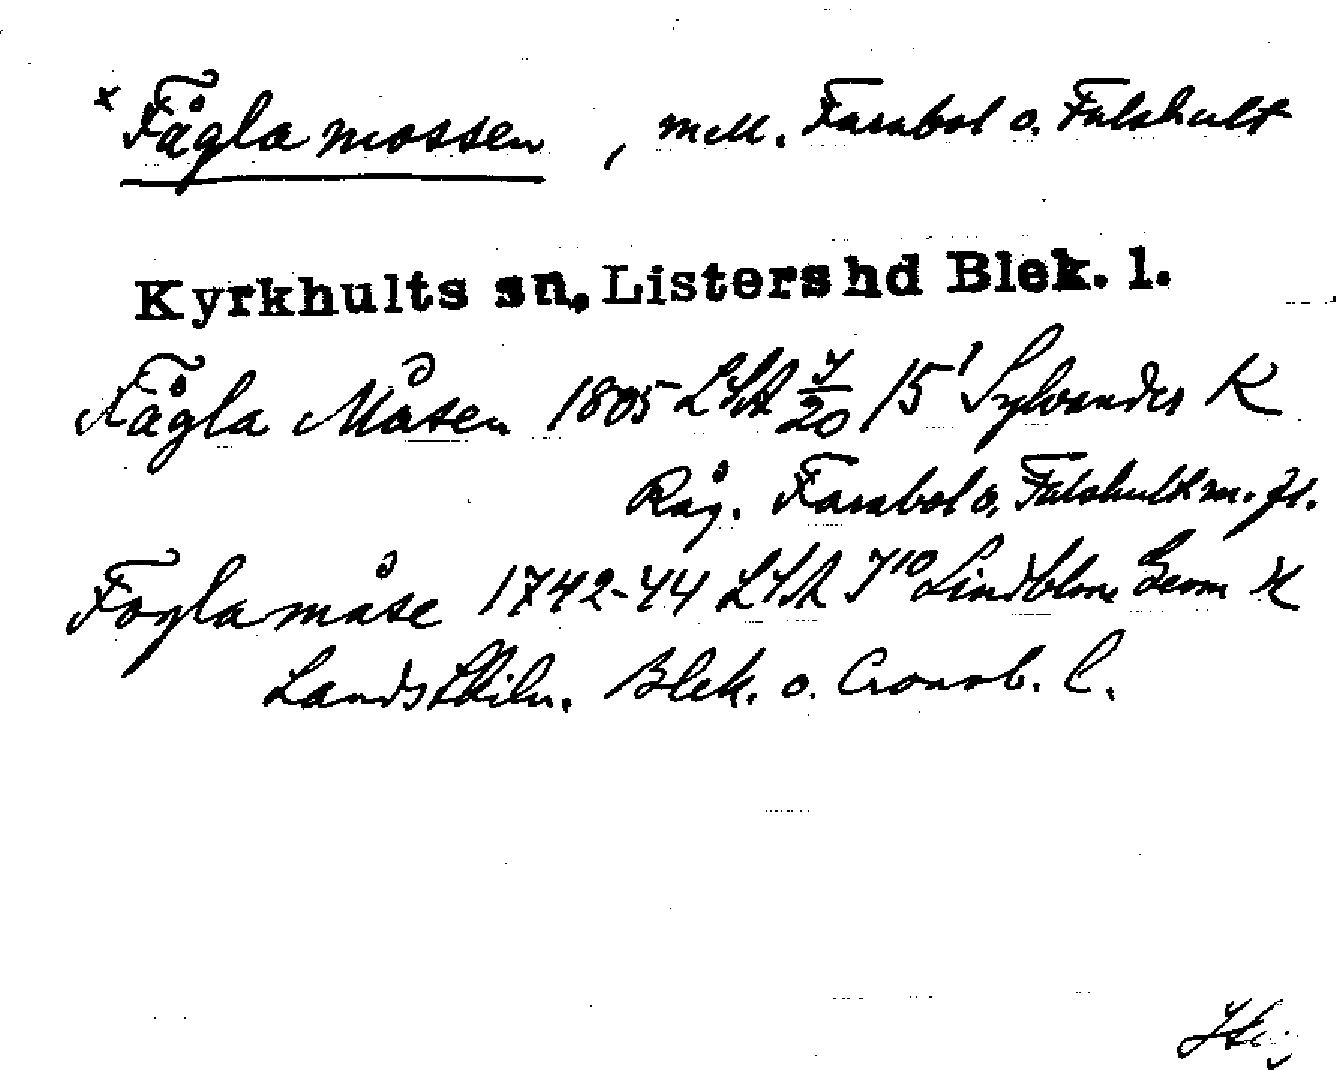 x Fågla mossen, mell. Farabol o. Fulshult
Kyrkhults sn. Listers hd Blek. l.
Fågla Måsen 1805 LSA 7/20 15¹ Sylvander K
Råg. Farabol o. Fulshult m. fl.
Fogla måse 1742-44 LSA J¹⁰ Lindblom Geom K
Landskiln. Blek. o. Cronob. l.